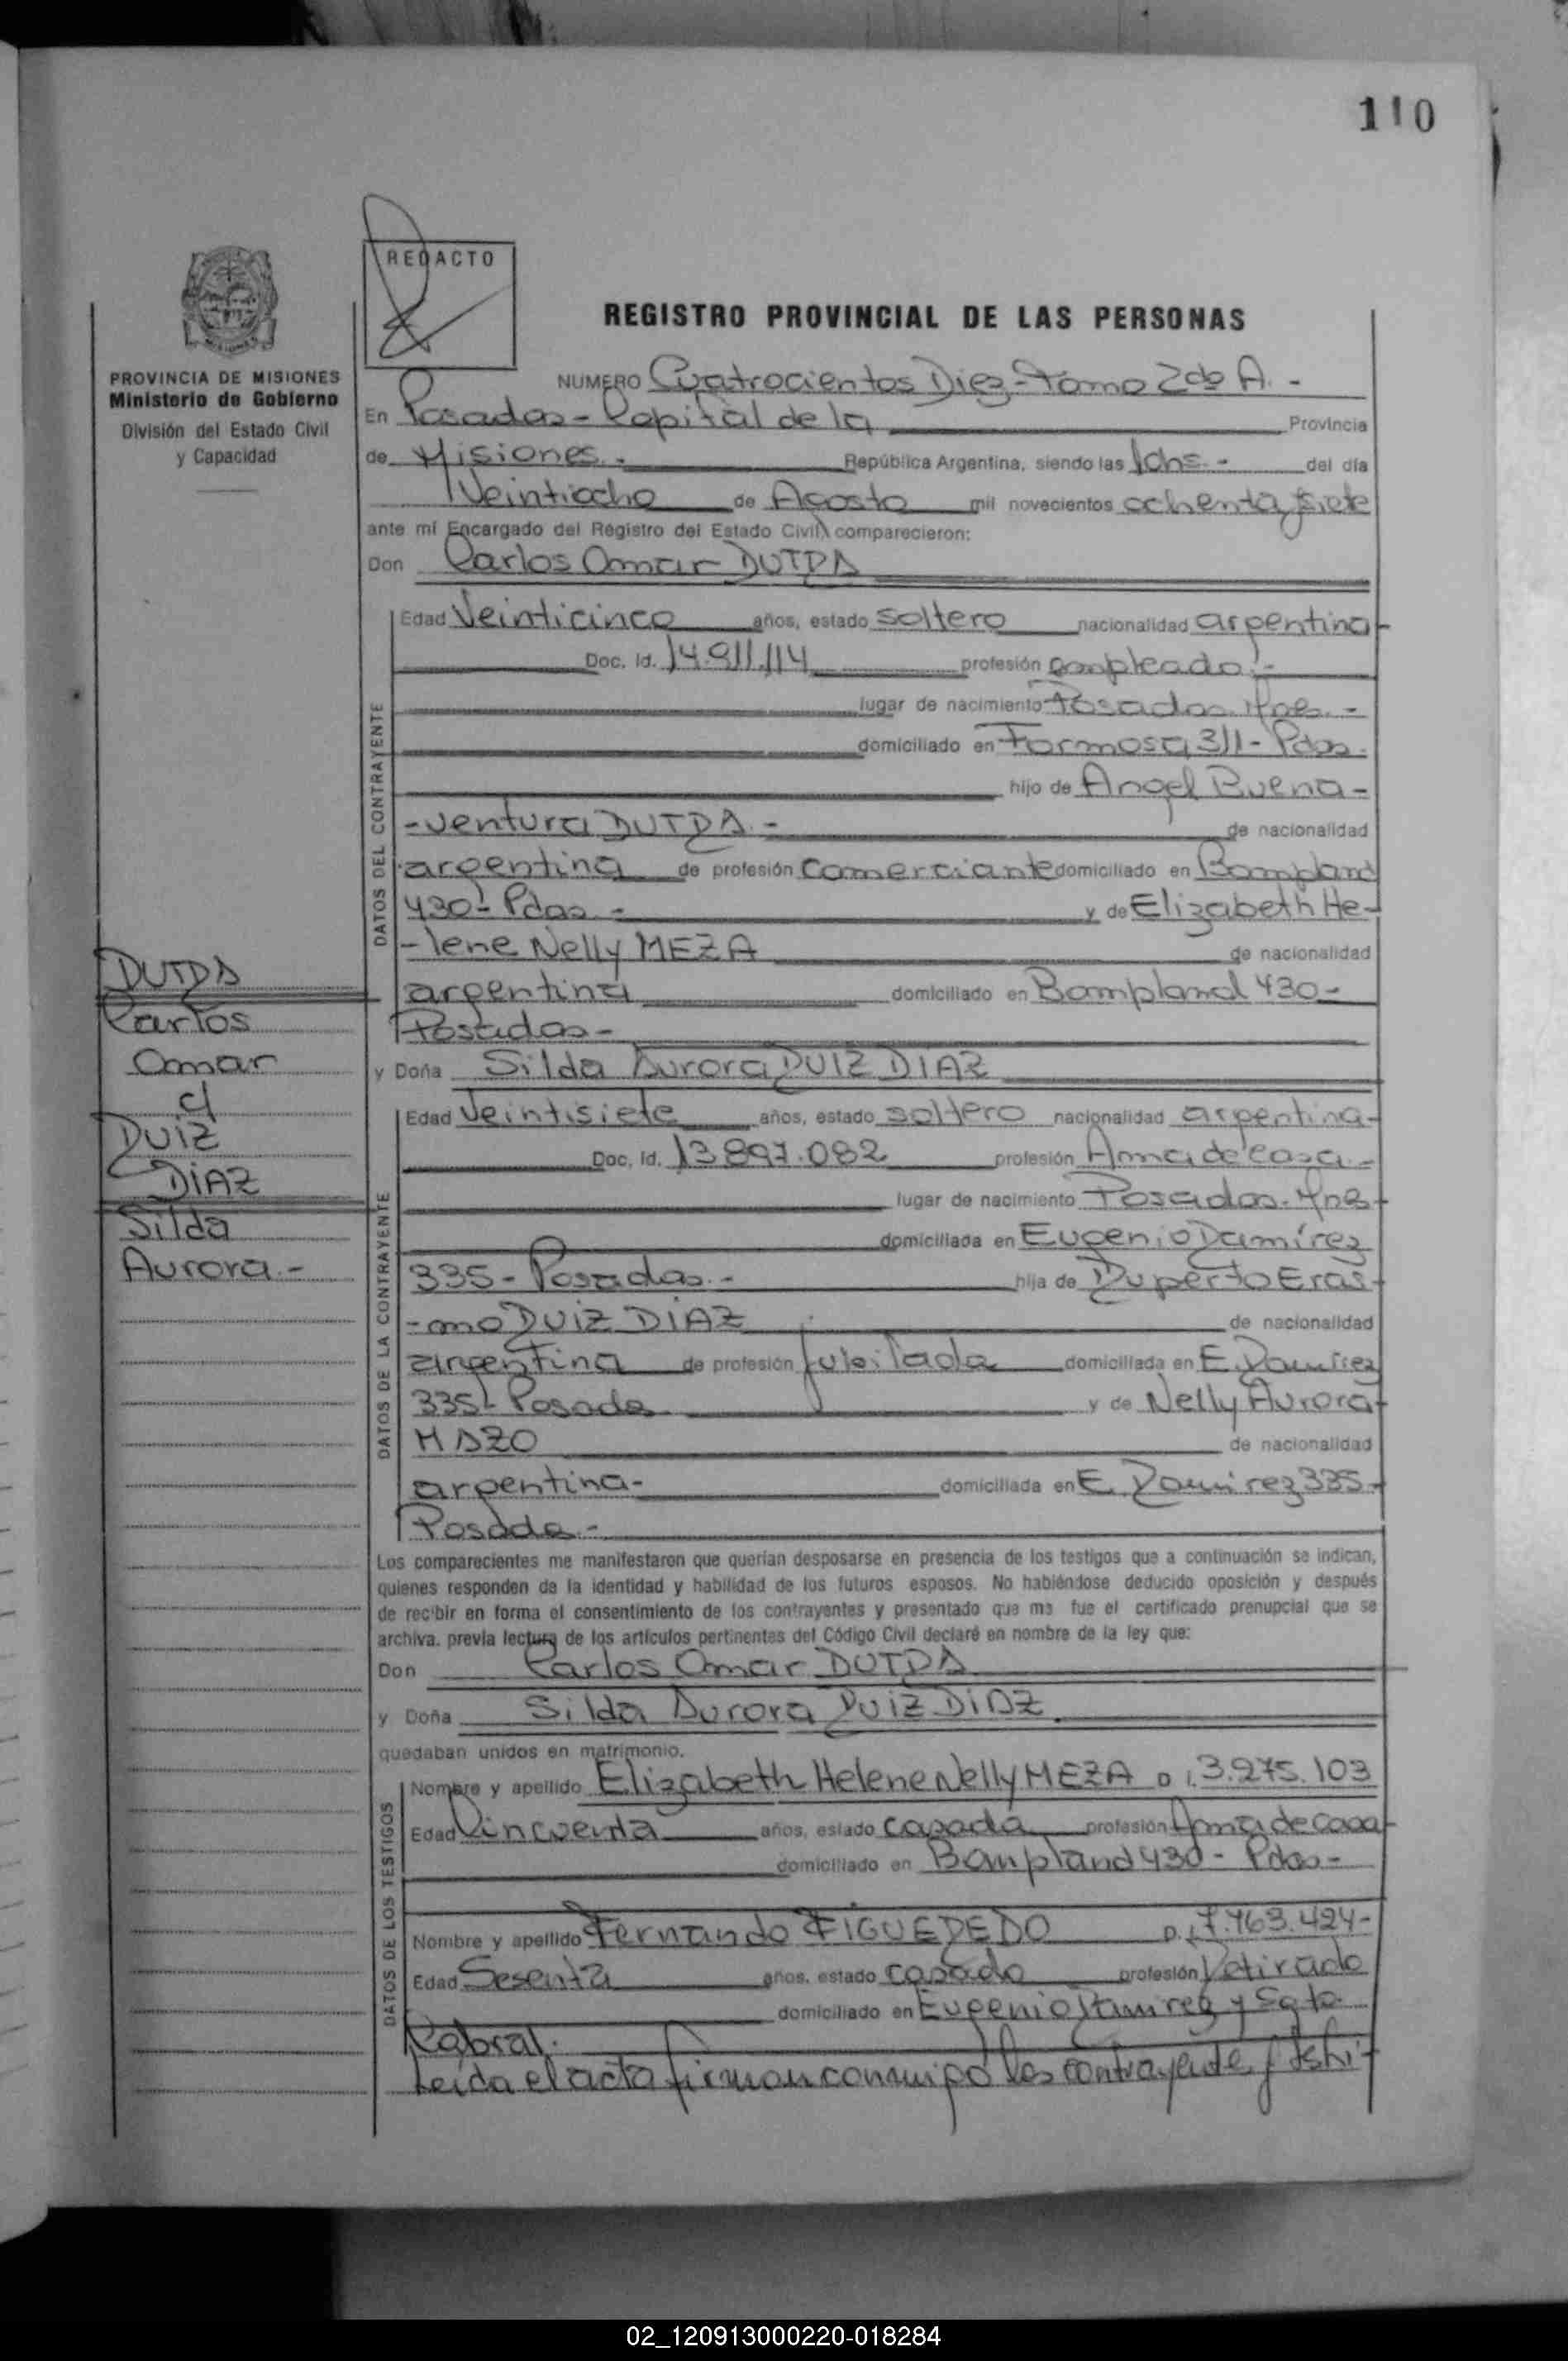 110
REDACTO
REGISTRO PROVINCIAL DE LAS PERSONAS
PROVINCIA DE MISIONES
Ministerio de Gobierno
División del Estado Civil
y Capacidad
NUMERO Cuatrocientos Diez - Tomo 2do A. -
En Posadas - Capital de la Provincia
de Misiones. - República Argentina, siendo las 10hs. - del día
Veintiocho de Agosto mil novecientos ochenta y siete
ante mí Encargado del Registro del Estado Civil, comparecieron:
Don Carlos Omar DUTRA
DATOS DEL CONTRAYENTE
Edad Veinticinco años, estado soltero nacionalidad argentina
Doc. Id. 14.911.114 profesión empleado. -
lugar de nacimiento Posadas Mnes. -
domiciliado en Formosa 311 - Pdas.
hijo de Angel Buena -
- ventura DUTRA. - de nacionalidad
argentina de profesión comerciante domiciliado en Bompland
430 - Pdas. - y de Elizabeth He -
- lene Nelly MEZA de nacionalidad
argentina domiciliado en Bompland 430 -
Posadas -
y Doña Silda Aurora RUIZ DIAZ
DATOS DE LA CONTRAYENTE
Edad Veintisiete años, estado soltero nacionalidad argentina -
Doc. Id. 13.897.082 profesión Ama de casa. -
lugar de nacimiento Posadas - Mnes
domiciliada en Eugenio Ramírez
335 - Posadas. - hija de Ruperto Eras -
- mo RUIZ DIAZ de nacionalidad
argentina de profesión jubilada domiciliada en E. Ramirez
335 - Posadas y de Nelly Aurora
MAZO de nacionalidad
argentina - domiciliada en E. Ramirez 335 -
Posadas -
DUTRA
Carlos
Omar
c/
RUIZ
DIAZ
Silda
Aurora. -
Los comparecientes me manifestaron que querían desposarse en presencia de los testigos que a continuación se indican,
quienes responden de la identidad y habilidad de los futuros esposos. No habiéndose deducido oposición y después
de recibir en forma el consentimiento de los contrayentes y presentado que me fue el certificado prenupcial que se
archiva, previa lectura de los artículos pertinentes del Código Civil declaré en nombre de la ley que:
Don Carlos Omar DUTRA
y Doña Silda Aurora RUIZ DIAZ
quedaban unidos en matrimonio.
DATOS DE LOS TESTIGOS
Nombre y apellido Elizabeth Helene Nelly MEZA D.I. 3.275.103
Edad Cincuenta años, estado casada profesión Ama de casa
domiciliado en Bompland 430 - Pdas -
Nombre y apellido Fernando FIGUEREDO D.I. 7.463.424 -
Edad Sesenta años, estado casado profesión Retirado
domiciliado en Eugenio Ramirez y Sgto.
Cabral.
Leida el acta firman conmigo los contrayente y testi -
02_120913000220-018284